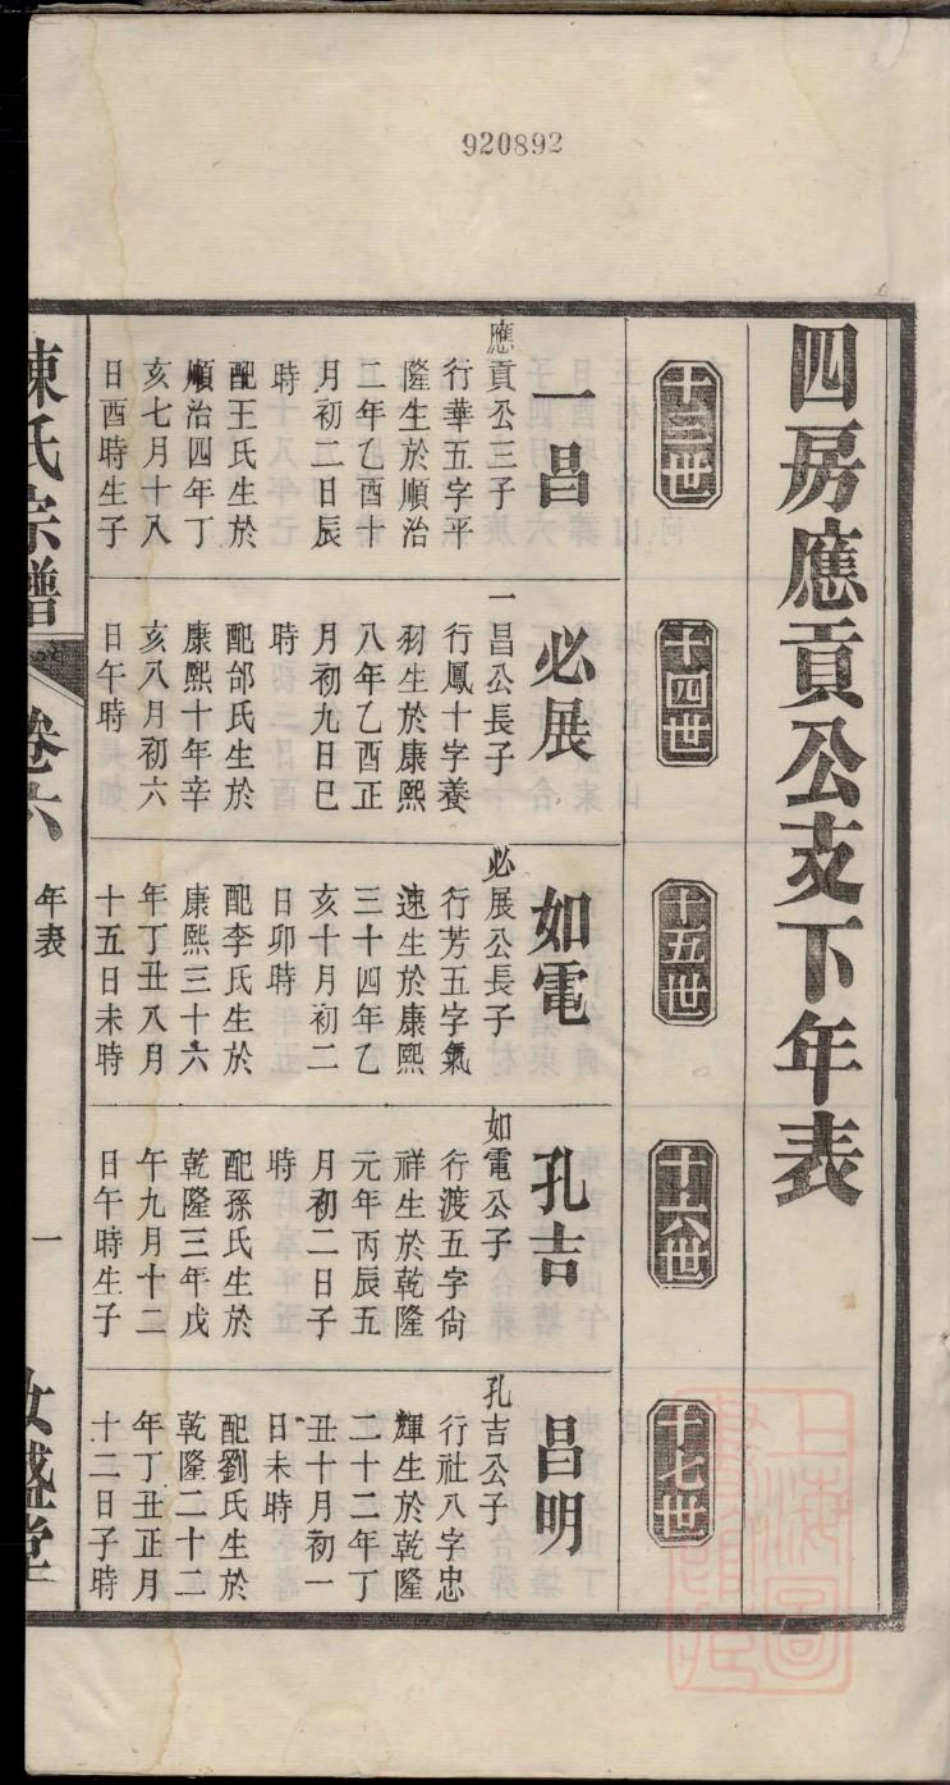 920892
四房應貢公支下年表
十三世
十四世
十五世
十六世
十七世
一昌
應貢公三子
行華五字平
隆生於順治
二年乙酉十
月初二日辰
時
配王氏生於
順治四年丁
亥七月十八
日酉時生子
必展
一昌公長子
行鳳十字養
羽生於康熙
八年乙酉正
月初九日巳
時
配邰氏生於
康熙十年辛
亥八月初六
日午時
如電
必展公長子
行芳五字氣
速生於康熙
三十四年乙
亥十月初二
日卯時
配李氏生於
康熙三十六
年丁丑八月
十五日未時
孔吉
如電公子
行渡五字尙
祥生於乾隆
元年丙辰五
月初二日子
時
配孫氏生於
乾隆三年戊
午九月十二
日午時生子
昌明
孔吉公子
行社八字忠
輝生於乾隆
二十二年丁
丑十月初一
日未時
配劉氏生於
乾隆二十二
年丁丑正月
十二日子時
陳氏宗譜
卷六
年表
一
盛堂
上海圖